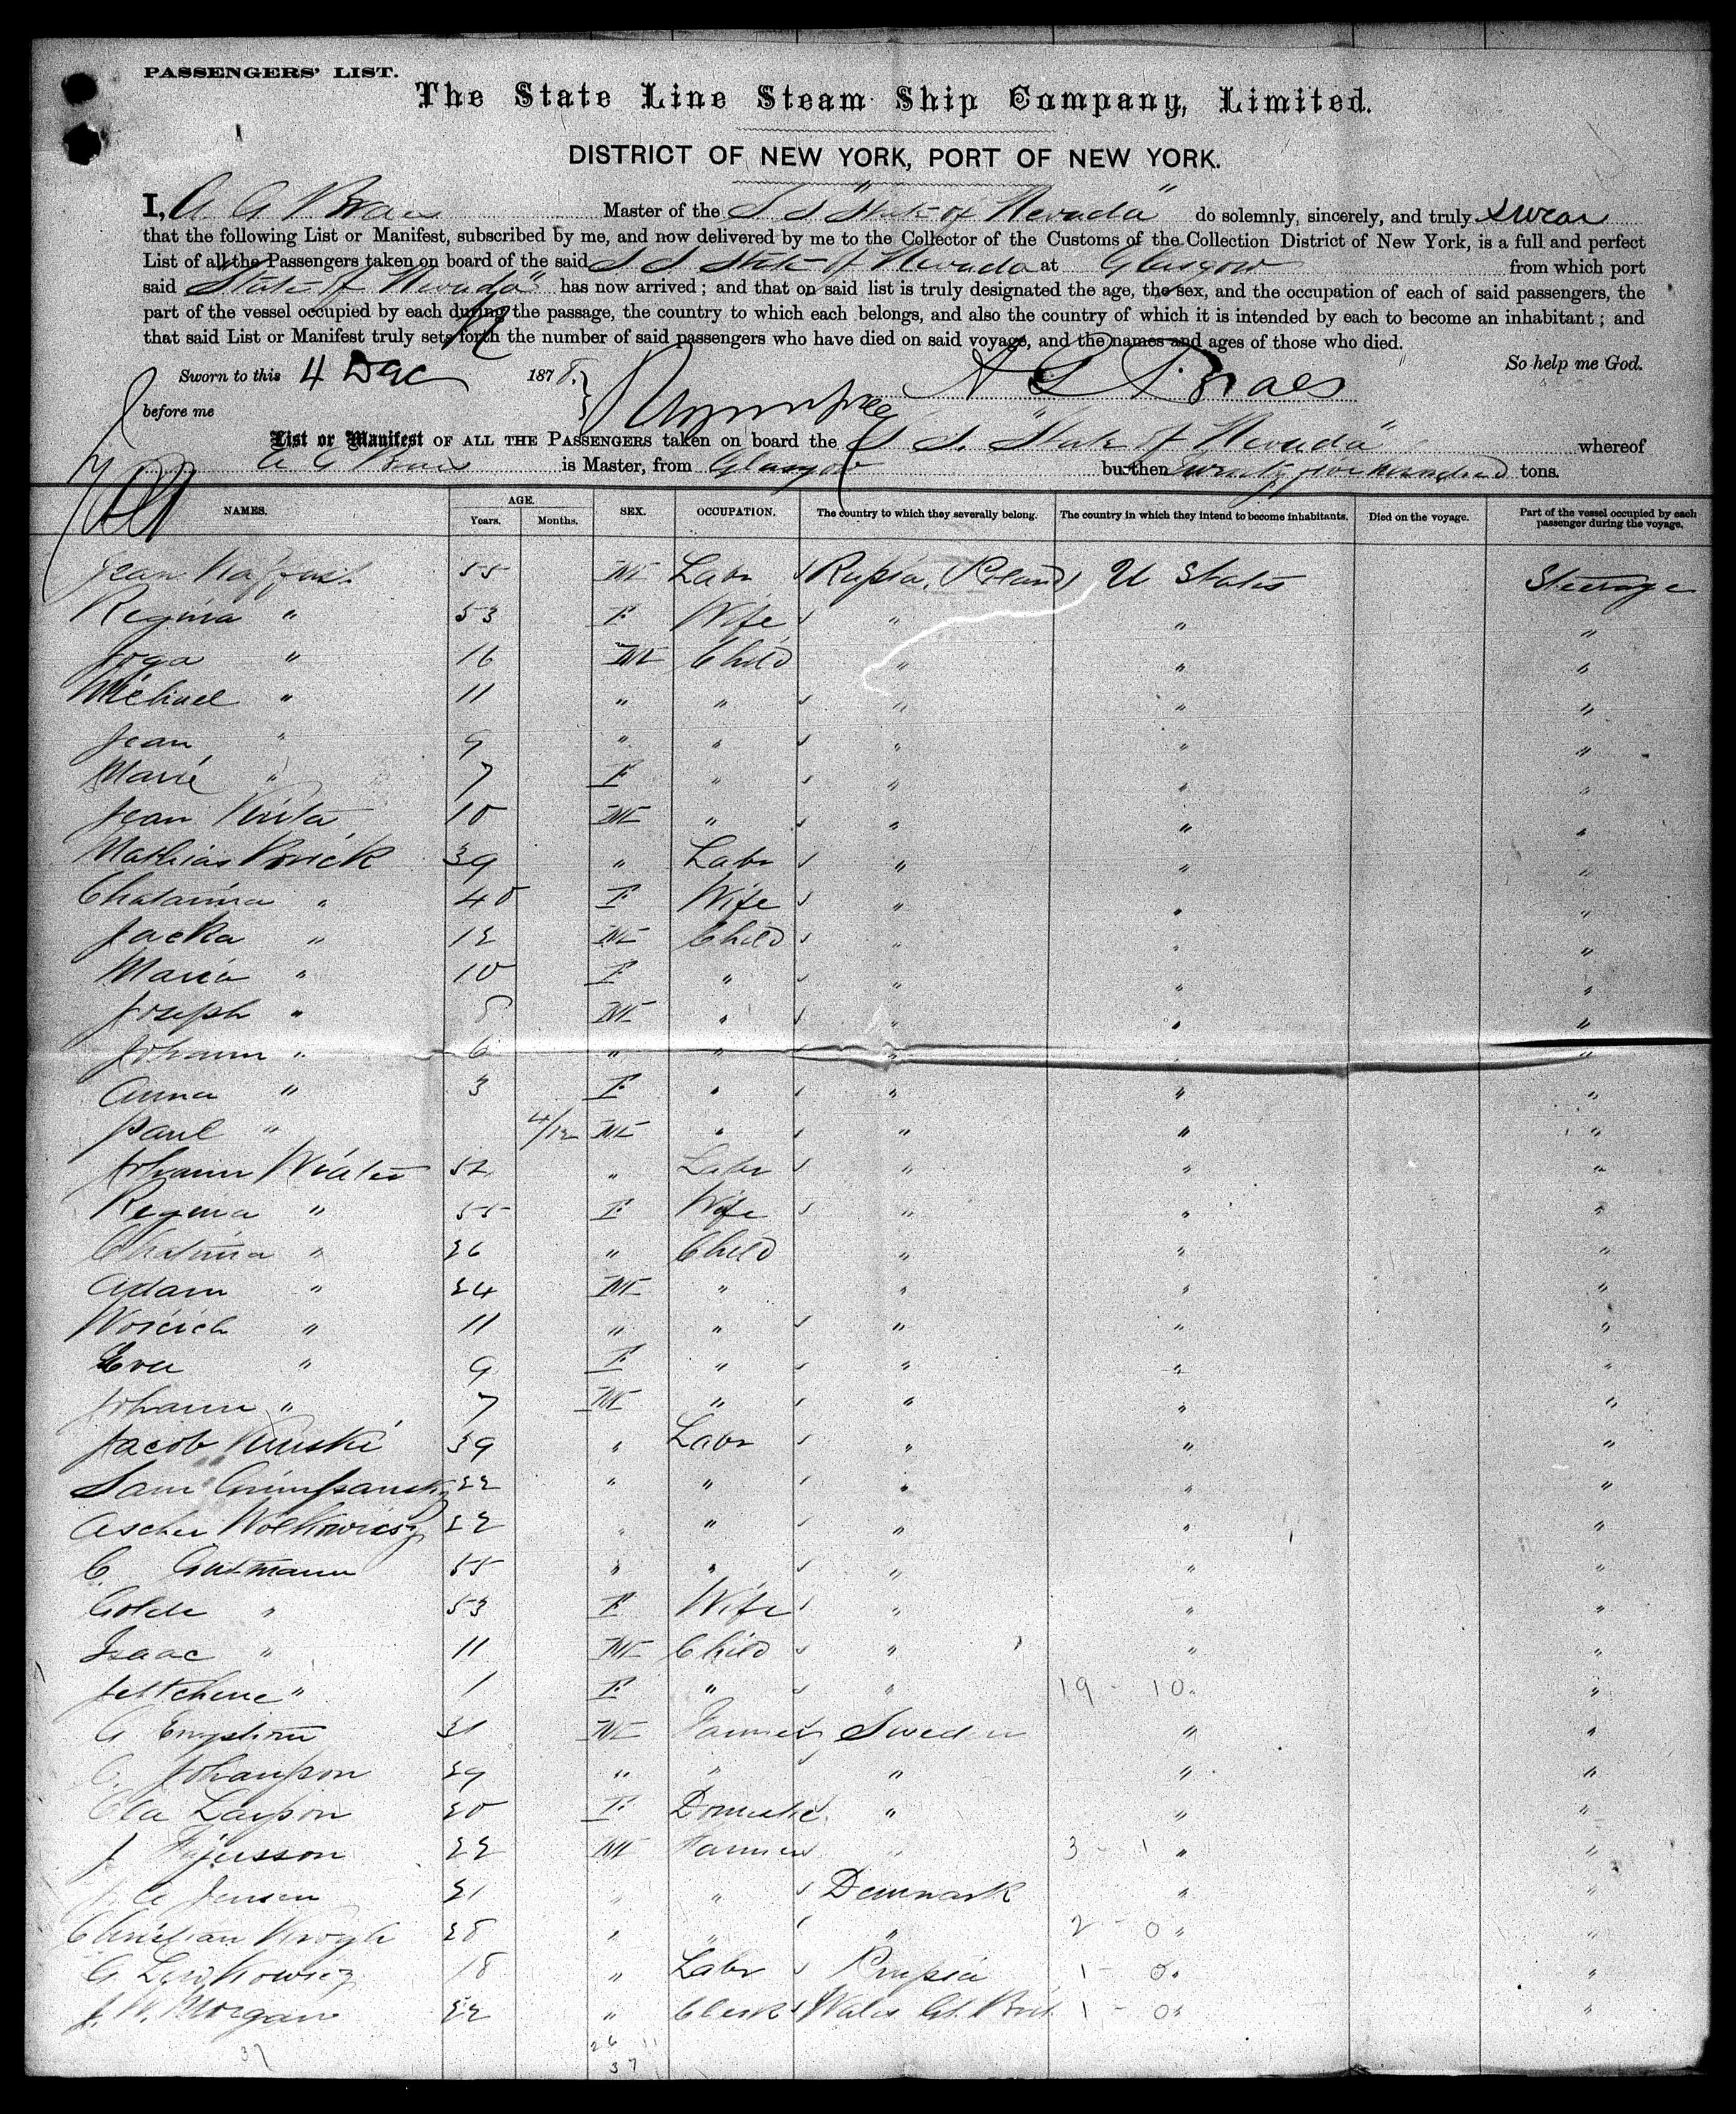 PASSENGERS' LIST.
The State Line Steam Ship Company, Limited.
DISTRICT OF NEW YORK, PORT OF NEW YORK.
I, A G Braes Master of the S S "State of Nevada" do solemnly, sincerely, and truly swear
that the following List or Manifest, subscribed by me, and now delivered by me to the Collector of the Customs of the Collection District of New York, is a full and perfect
List of all the Passengers taken on board of the said S S State of Nevada at Glasgow from which port
said State of Nevada" has now arrived; and that on said list is truly designated the age, the sex, and the occupation of each of said passengers, the
part of the vessel occupied by each during the passage, the country to which each belongs, and also the country of which it is intended by each to become an inhabitant; and
that said List or Manifest truly sets forth the number of said passengers who have died on said voyage, and the names and ages of those who died.
So help me God.
Sworn to this 4 Dec 1878. A G Braes
before me
List or Manifest OF ALL THE PASSENGERS taken on board the S S. "State of Nevada" whereof
A G Braes is Master, from Glasgow burthen Twenty five hundred tons.
NAMES. AGE. Years. Months. SEX. OCCUPATION. The country to which they severally belong. The country in which they intend to become inhabitants. Died on the voyage. Part of the vessel occupied by each passenger during the voyage.
Jean 55 M Labr Russia, Poland U States Steerage
Regina " 53 F Wife " " "
" 16 M Child " " "
Michael " 11 " " " " "
Jean " 9 " " " " "
Marie " 7 F " " " "
Jean 10 M " " " "
Mathias 39 " Labr " " "
Chatarina " 40 F Wife " " "
Jacka " 12 M Child " " "
Maria " 10 F " " " "
Joseph " 8 M " " " "
Johann " 6 " " " " "
Anna " 3 F " " " "
Paul " 4/12 M " " " "
Johann 52 " Labr " " "
Regina " 55 F Wife " " "
" 26 " Child " " "
Adam " 24 M " " " "
" 11 " " " " "
Eva " 9 F " " " "
Johann " 7 M " " " "
Jacob 39 " Labr " " "
Sam 22 " " " " "
Ascher Wolkowicsz 22 " " " " "
C. Gutmann 55 " " " " "
Golde " 53 F Wife " " "
Isaac " 11 M Child " " "
Jettchene " 1 F " " 19 - 10 " "
G Engstrom 31 M Farmer Sweden " "
C. Johansson 29 " " " " "
Ola Larsson 20 F Domestic " " "
J 22 M Farmer " 3 - 1 " "
A Jensen 21 " " Denmark " "
Christian Krogh 28 " " " 2 - 0 " "
G 18 " Labr 1 - 0 " "
J. W. Morgan 22 " Clerk Wales Gt. Brit 1 - 0 " "
26 11
37 37